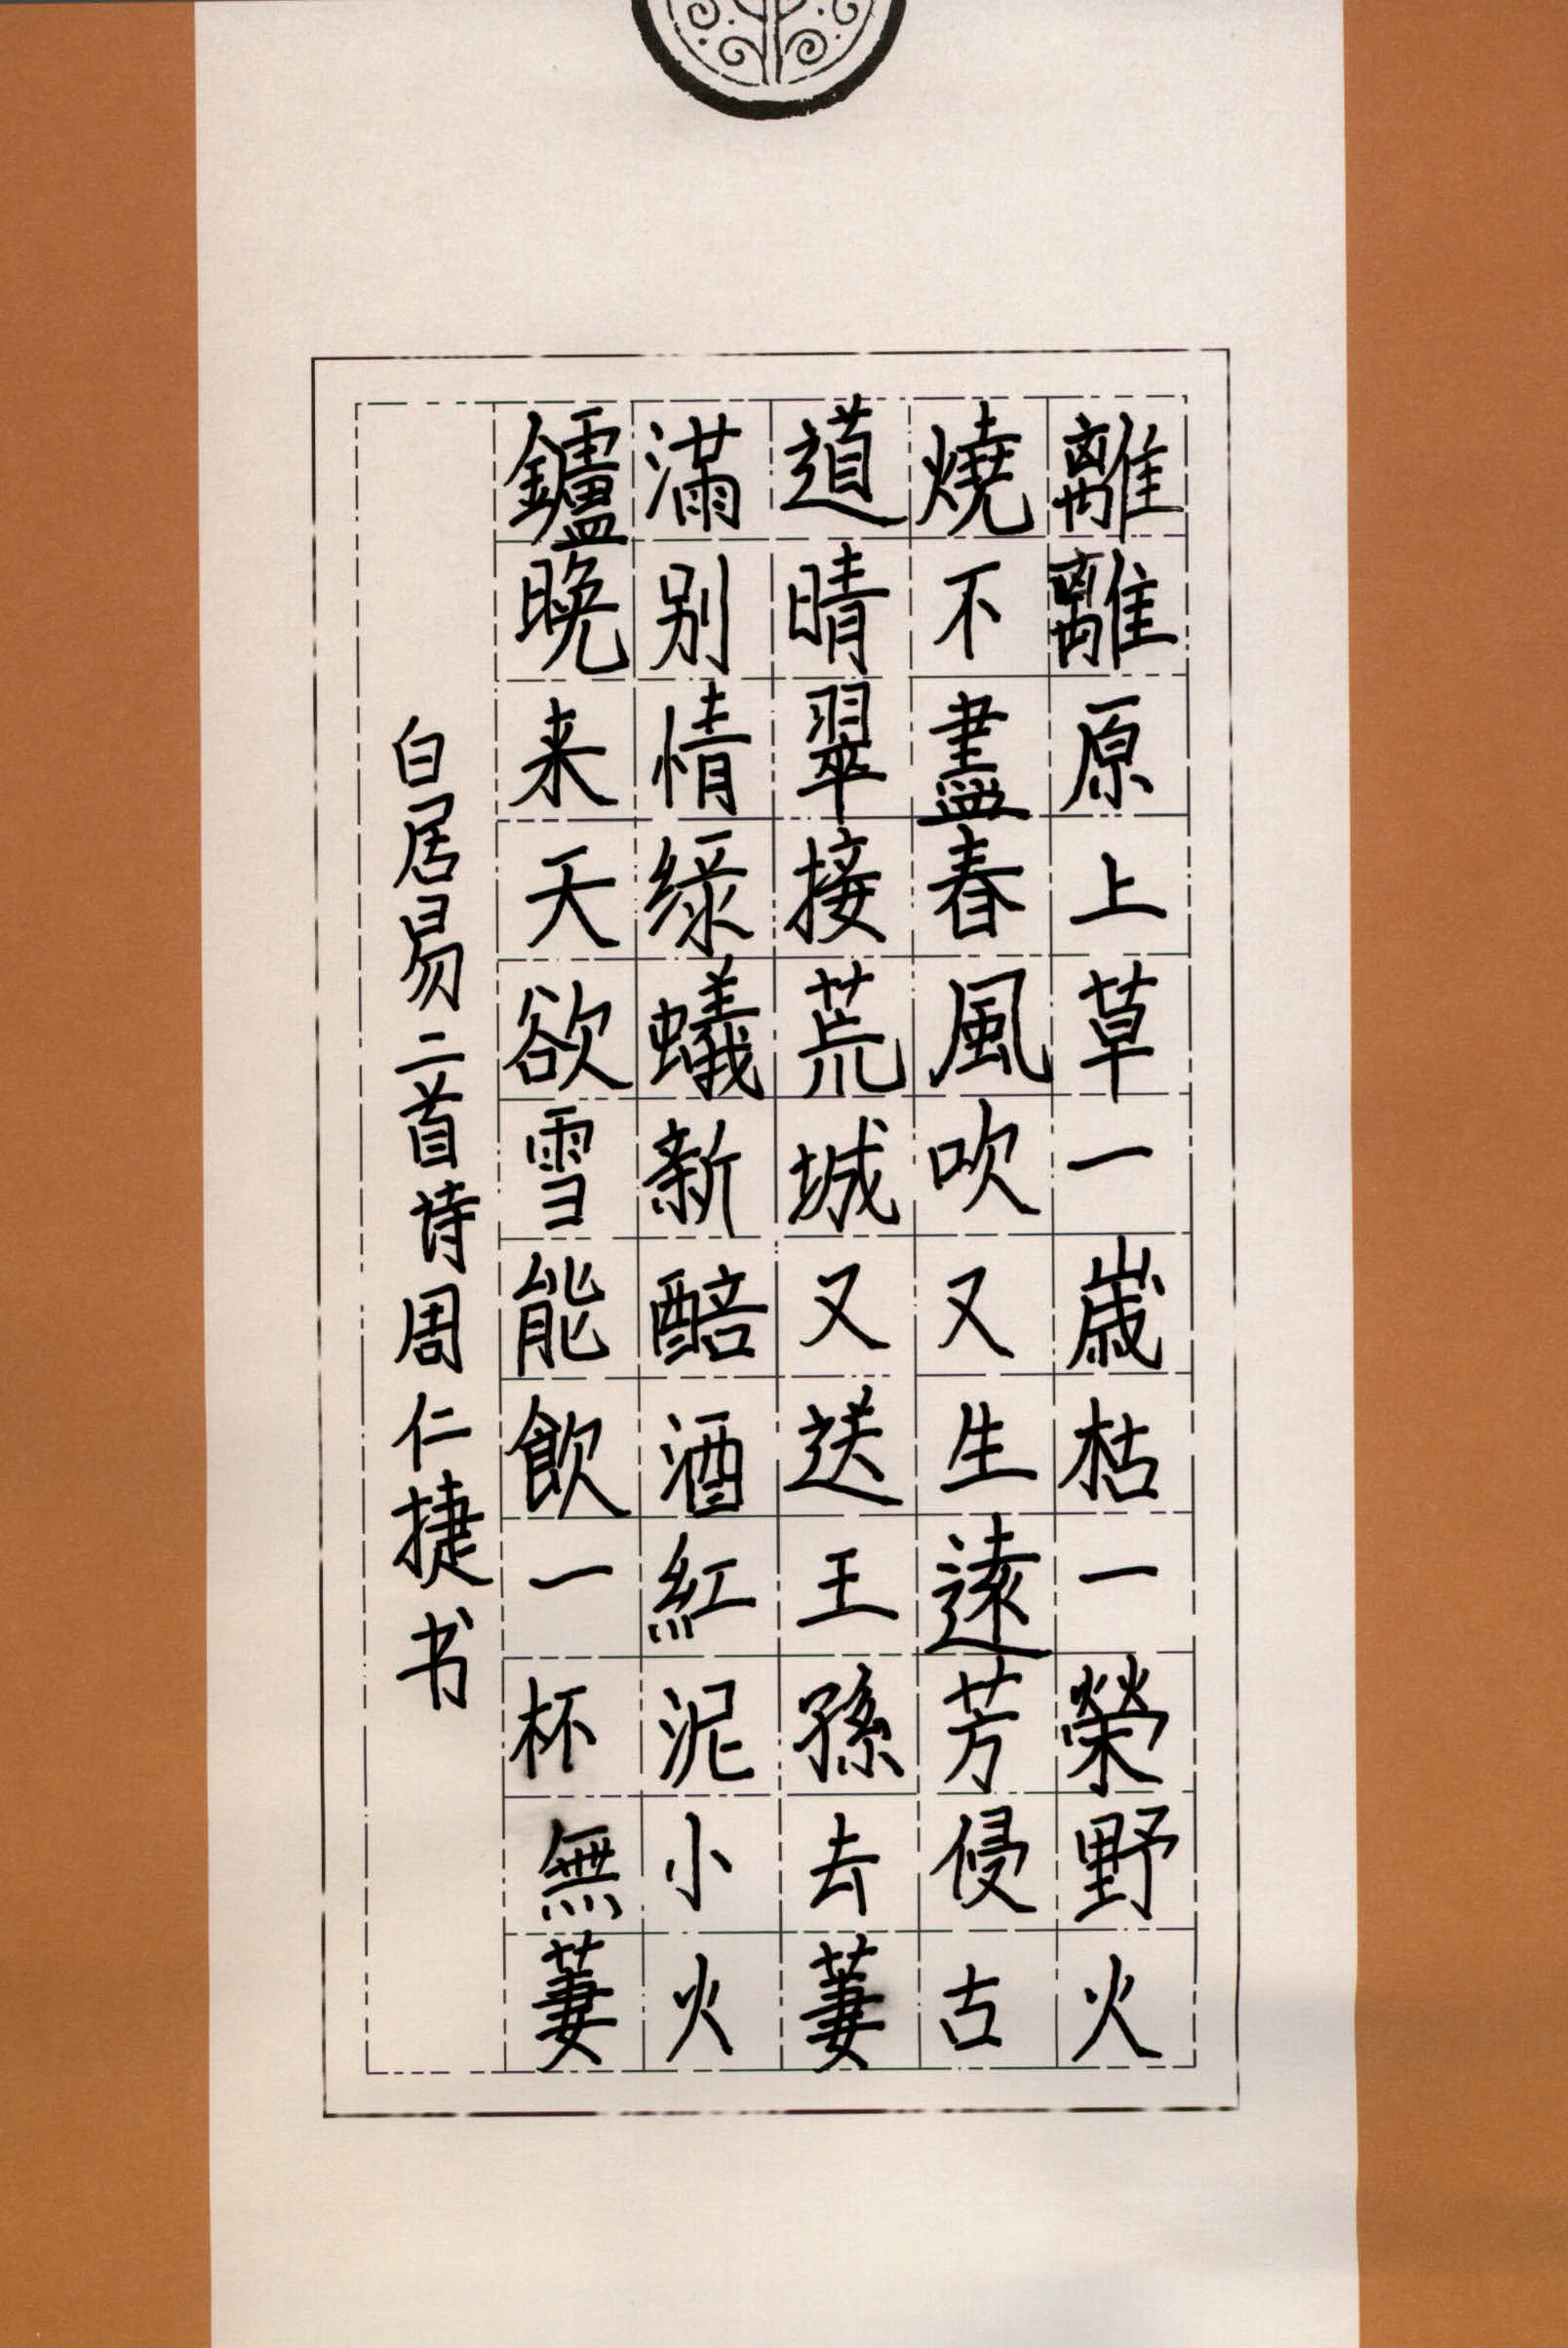 離離原上草一歲枯一榮野火
燒不盡春風吹又生遠芳侵古
道晴翠接荒城又送王孫去萋
滿别情緑蟻新醅酒紅泥小火
鑪晚来天欲雪能飲一杯無萋
白居易二首诗周仁捷书